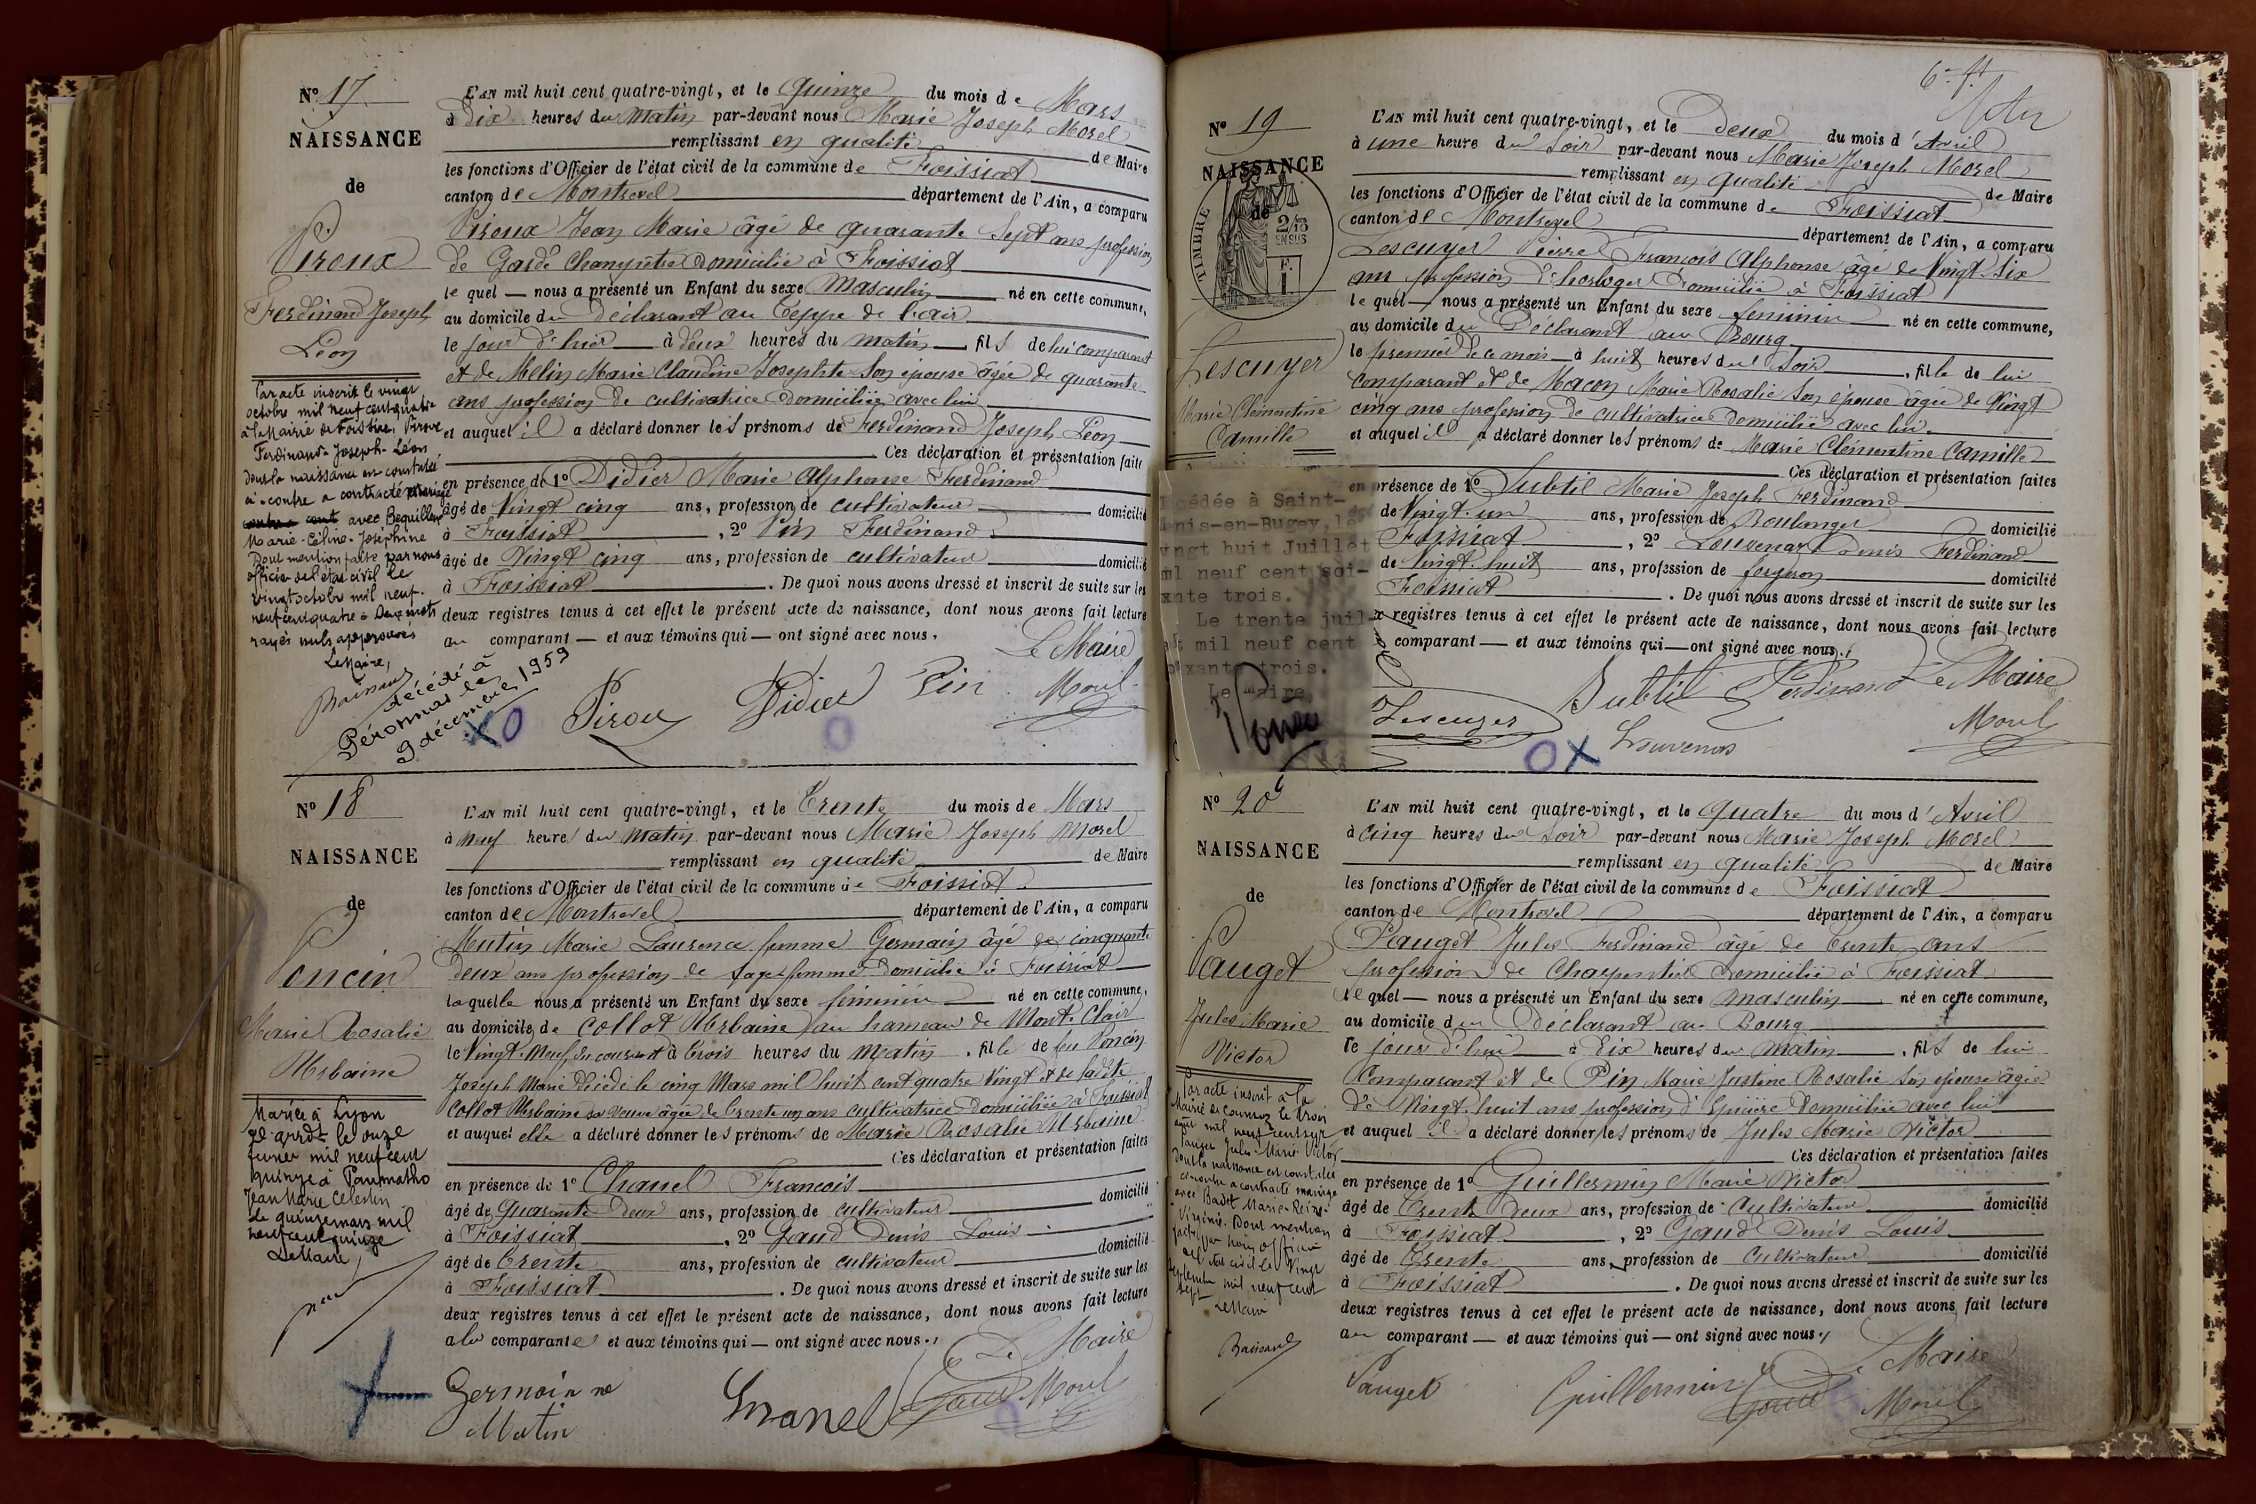 N° 17
NAISSANCE
de
Piroux
Ferdinand Joseph
Léon
Par acte inscrit le vingt
octobre mil neuf cent quatre
à la Mairie de Foissiat, Piroux
Ferdinand-Joseph-Léon
dont la naissance est constatée
ci-contre a contracté mariage
avec
Marie-Céline-Joséphine
Dont mention faite par nous
officier de l'état civil le
vingt octobre mil neuf
neuf cent quatre = Deux mots
rayés nuls approuvés
Le Maire,
décédé à
Péronnas le
9 décembre 1959
L'AN mil huit cent quatre-vingt, et le Quinze du mois de Mars
à Dix heures du Matin par-devant nous Marie Joseph Morel
remplissant en qualité de Maire
les fonctions d'Officier de l'état civil de la commune de Foissiat
canton de Montrevel département de l'Ain, a comparu
Piroux Jean Marie âgé de quarante Sept ans profession
de Garde Champêtre Domicilié à Foissiat
le quel — nous a présenté un Enfant du sexe Masculin né en cette commune,
au domicile du Déclarant au Teppe de
le jour d'hier à deux heures du matin fils de lui comparant
et de Melin Marie Claudine Josephte Son épouse âgée de quarante
ans profession de cultivatrice domiciliée avec lui
et auquel il a déclaré donner les prénoms de Ferdinand Joseph Léon
Ces déclaration et présentation faites
en présence de 1° Didier Marie Alphonse Ferdinand
âgé de Vingt cinq ans, profession de cultivateur domicilié
à Foissiat , 2° Pin Ferdinand
âgé de Vingt cinq ans, profession de cultivateur domicilié
à Foissiat . De quoi nous avons dressé et inscrit de suite sur les
deux registres tenus à cet effet le présent acte de naissance, dont nous avons fait lecture
au comparant — et aux témoins qui — ont signé avec nous.
Le Maire
Piroux Didier Pin Morel
N° 18
NAISSANCE
de
Poncin
Marie Rosalie
Urbaine
Mariée à Lyon
2e arrdt le onze
février mil neuf cent
quinze à
Jean Marie Célestin
Le quinze mars mil
neuf cent quinze
Le Maire,
L'AN mil huit cent quatre-vingt, et le Trente du mois de Mars
à Neuf heures du Matin par-devant nous Marie Joseph Morel
remplissant en qualité de Maire
les fonctions d'Officier de l'état civil de la commune de Foissiat
canton de Montrevel département de l'Ain, a comparu
Mutin Marie Laurence femme Germain âgé de cinquante
deux ans profession de sage femme Domicilié à Foissiat
laquelle nous a présenté un Enfant du sexe féminin né en cette commune,
au domicile de Collot Urbaine au hameau de Mont-Clair
le Vingt-Neuf du courant à Trois heures du Matin , fille de feu Poncin
Joseph Marie Décédé le cinq Mars mil huit cent quatre Vingt et de ladite
Collot Urbaine sa veuve âgée de Trente un ans cultivatrice Domiciliée à Foissiat
et auquel elle a déclaré donner les prénoms de Marie Rosalie Urbaine
Ces déclaration et présentation faites
en présence de 1° Chanel François
âgé de Quarante Deux ans, profession de cultivateur domicilié
à Foissiat , 2° Gaud Denis Louis
âgé de Trente ans, profession de cultivateur domicilié
à Foissiat . De quoi nous avons dressé et inscrit de suite sur les
deux registres tenus à cet effet le présent acte de naissance, dont nous avons fait lecture
à la comparante et aux témoins qui — ont signé avec nous.
Le Maire
Germain ne
Mutin
Chanel Gaud Morel
6e ft
N° 19
NAISSANCE
de
TIMBRE
2/10
EN SUS
Lescuyer
Marie Clémentine
Camille
Décédée à Saint-
Denis-en-Bugey, le
vingt huit Juillet
mil neuf cent soi-
xante trois.
Le trente juil-
et mil neuf cent
oixante trois.
Le maire,
L'AN mil huit cent quatre-vingt, et le Deux du mois d'Avril
à une heure du Soir par-devant nous Marie Joseph Morel
remplissant en qualité de Maire
les fonctions d'Officier de l'état civil de la commune de Foissiat
canton de Montrevel département de l'Ain, a comparu
Lescuyer Pierre François Alphonse âgé de Vingt-Six
ans profession d'horloger Domicilié à Foissiat
le quel — nous a présenté un Enfant du sexe féminin né en cette commune,
au domicile du Déclarant au Bourg
le premier de ce mois à huit heures du Soir , fille de lui
comparant et de Macon Marie Rosalie Son épouse âgée de Vingt
cinq ans profession de cultivatrice domiciliée avec lui
et auquel il a déclaré donner les prénoms de Marie Clémentine Camille
Ces déclaration et présentation faites
en présence de 1° Subtil Marie Joseph Ferdinand
de Vingt-un ans, profession de Boulanger domicilié
Foissiat , 2° Louvenar Denis Ferdinand
de Vingt-huit ans, profession de forgeron domicilié
Foissiat . De quoi nous avons dressé et inscrit de suite sur les
x registres tenus à cet effet le présent acte de naissance, dont nous avons fait lecture
comparant — et aux témoins qui — ont signé avec nous.
Lescuyer Subtil Ferdinand Le Maire
Louvenar Morel
N° 20
NAISSANCE
de
Pauget
Jules Marie
Victor
Par acte inscrit à la
Mairie de le trois
août mil neuf cent sept
Pauget Jules-Marie Victor
dont la naissance est constatée
ci-contre a contracté mariage
avec Badet Marie-Reine-
Virginie. Dont mention
faite par nous officier
de l'état civil le Vingt
septembre mil neuf cent
sept
Le Maire
L'AN mil huit cent quatre-vingt, et le Quatre du mois d'Avril
à cinq heures du soir par-devant nous Marie Joseph Morel
remplissant en qualité de Maire
les fonctions d'Officier de l'état civil de la commune de Foissiat
canton de Montrevel département de l'Ain, a comparu
Pauget Jules Ferdinand âgé de Trente ans
profession de Charpentier Domicilié à Foissiat
le quel — nous a présenté un Enfant du sexe masculin né en cette commune,
au domicile du Déclarant au Bourg
le jour d'hui à Dix heures du Matin , fils de lui
Comparant et de Pin Marie Justine Rosalie son épouse âgée
de Vingt-huit ans profession d'Epicière Domiciliée avec lui
et auquel il a déclaré donner les prénoms de Jules Marie Victor
Ces déclaration et présentation faites
en présence de 1° Guillermin Marie Victor
âgé de Trente Deux ans, profession de Cultivateur domicilié
à Foissiat , 2° Gaud Denis Louis
âgé de Trente ans, profession de Cultivateur domicilié
à Foissiat . De quoi nous avons dressé et inscrit de suite sur les
deux registres tenus à cet effet le présent acte de naissance, dont nous avons fait lecture
au comparant — et aux témoins qui — ont signé avec nous.
Le Maire
Pauget Guillermin Gaud Morel